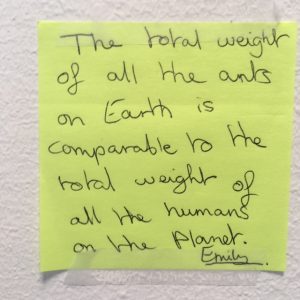 The total weight
of all the ants
on Earth is
comparable to the
total weight of
all the humans
on the Planet.
Emily.